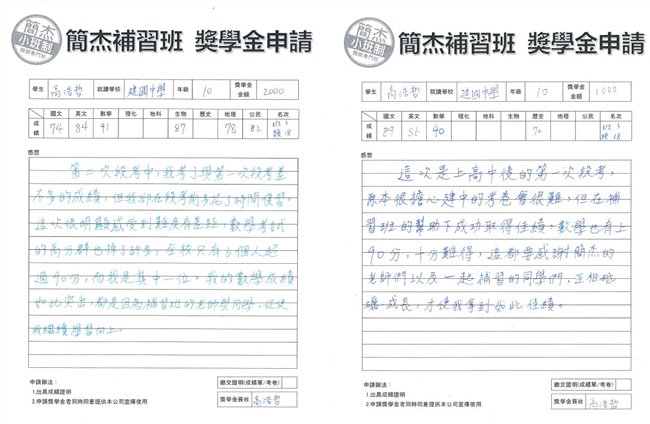 簡杰
小班制
簡杰補習班 獎學金申請
學生 高浩哲 就讀學校 建國中學 年級 10 獎學金金額 2000
國文 英文 數學 理化 地科 生物 歷史 地理 公民 名次
成績 74 84 91 87 78 82 班3 校18
感想
第二次段考中,我考了與第一次段考差
不多的成績,但我卻在段考前多花了時間複習。
這次很明顯感受到難度有差距,數學考試
的高分群也掉了許多,全校只有6個人超
過90分,而我是其中一位。我的數學成績
如此突出,都是因為補習班的老師與同學,促使
我繼續學習向上。
申請辦法:
1.出具成績證明
2.申請獎學金者同時同意提供本公司宣傳使用
繳交證明(成績單/考卷)
獎學金簽收 高浩哲
簡杰
小班制
簡杰補習班 獎學金申請
學生 高浩哲 就讀學校 建國中學 年級 10 獎學金金額 1000
國文 英文 數學 理化 地科 生物 歷史 地理 公民 名次
成績 89 90 班3 校18
感想
這次是上高中後的第一次段考,
原本很擔心建中的考卷會很難,但在補
習班的幫助下成功取得佳績,數學也有上
90分,十分難得,這都要感謝簡杰的
老師們以及一起補習的同學們,互相砥
礪、成長,才使我拿到如此佳績。
申請辦法:
1.出具成績證明
2.申請獎學金者同時同意提供本公司宣傳使用
繳交證明(成績單/考卷)
獎學金簽收 高浩哲